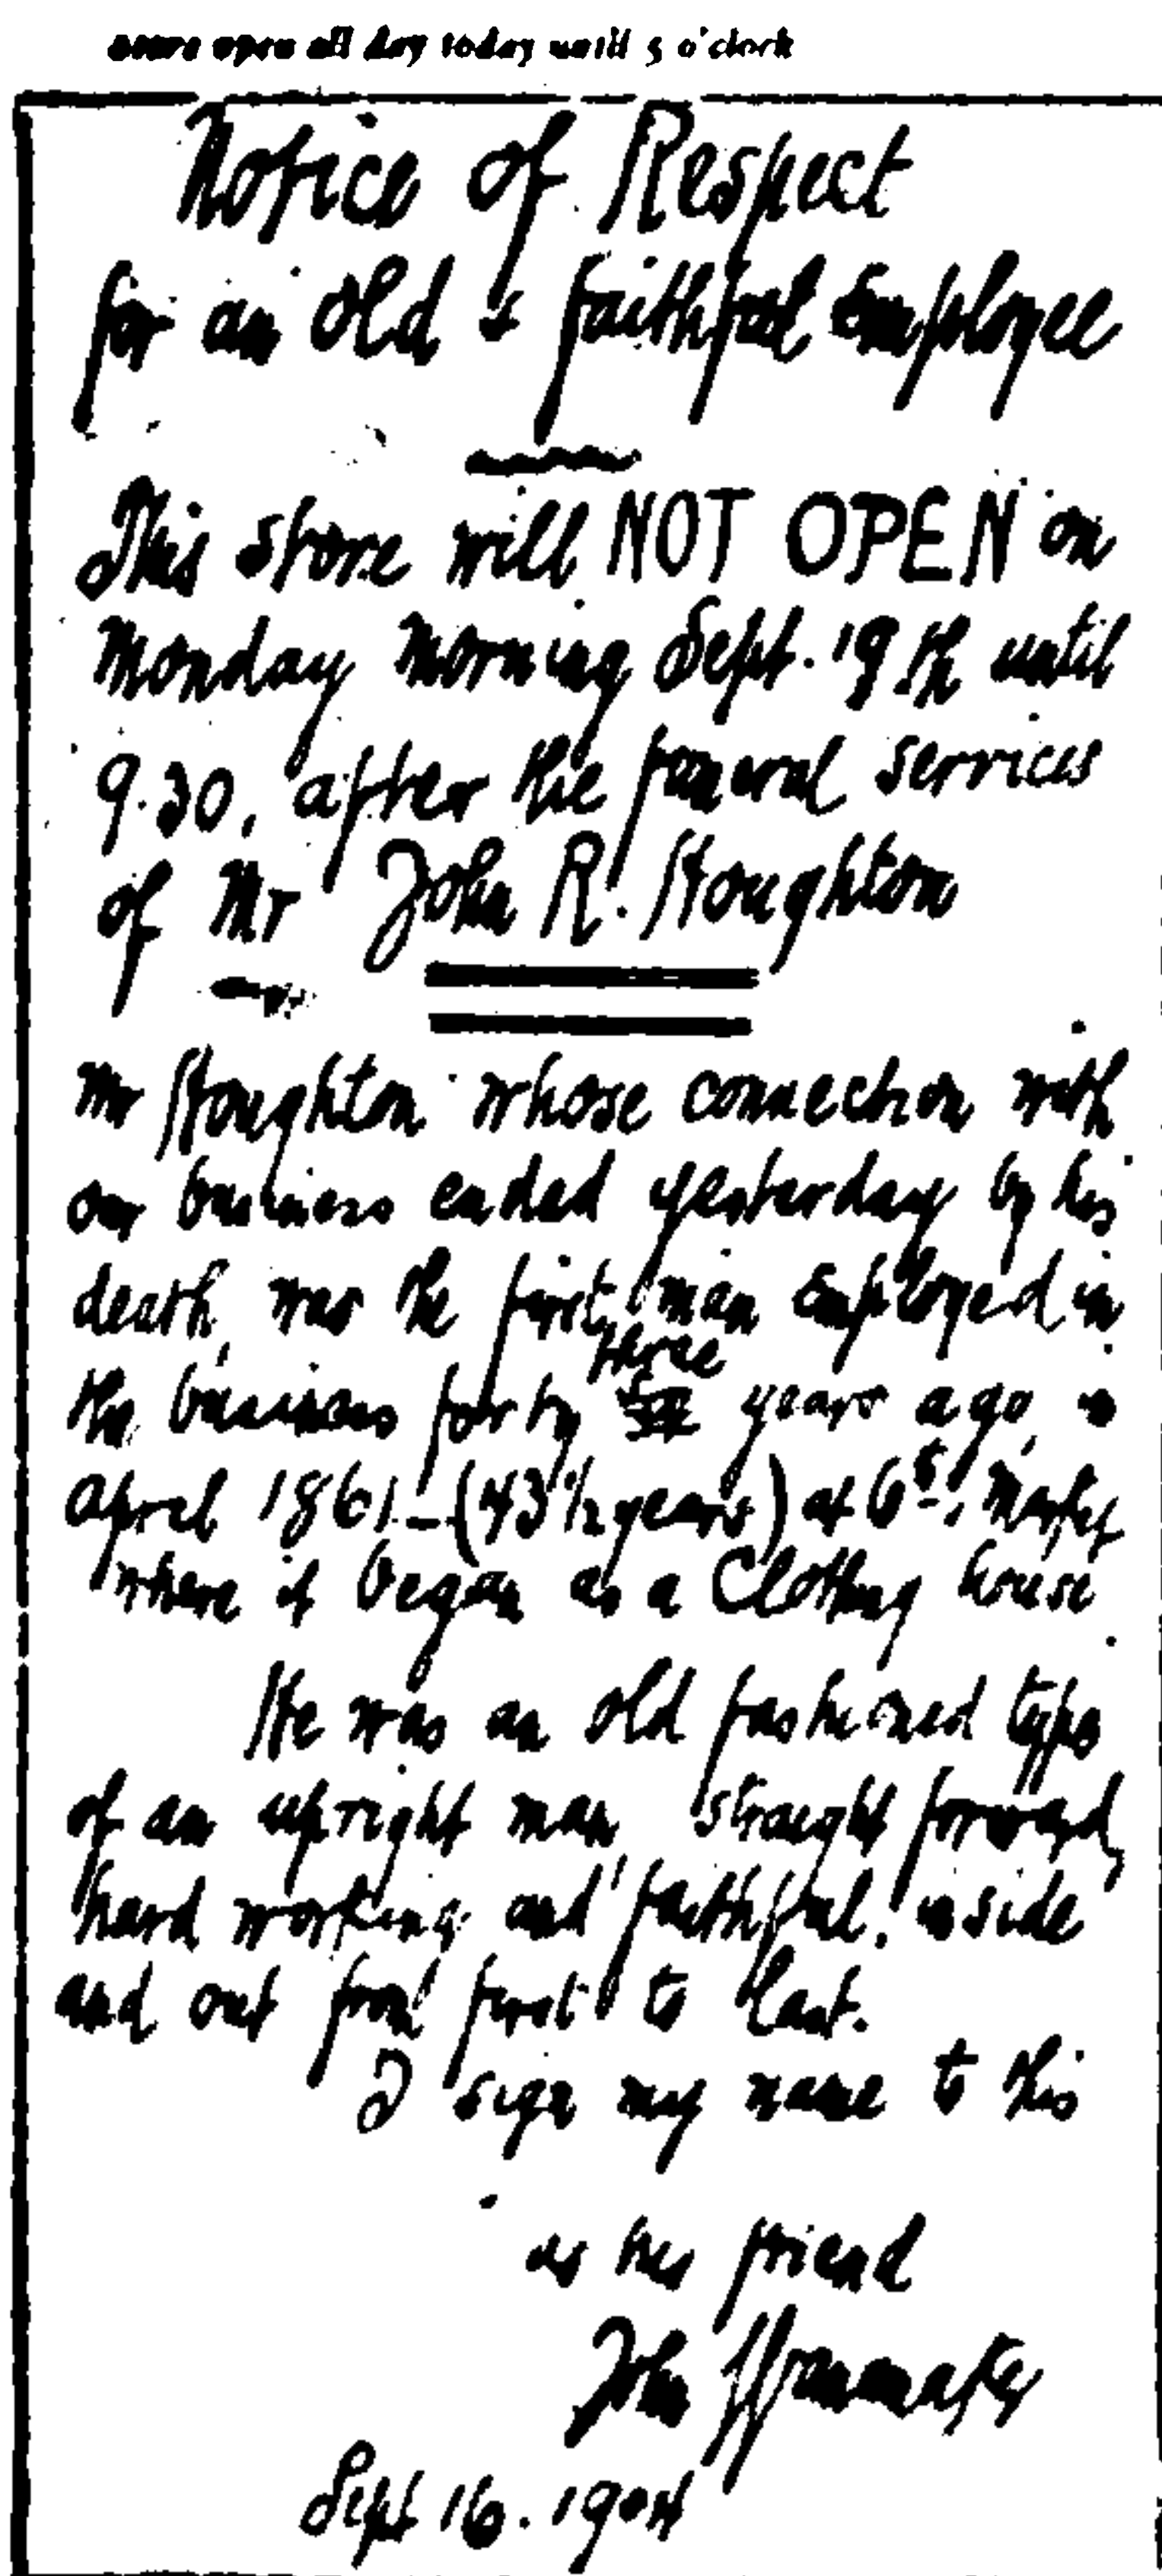 store open all day today until 5 o'clock
Notice of Respect
for an old & faithful Employee
This store will NOT OPEN on
Monday morning Sept. 19th until
9.30, after the funeral services
of Mr John R. Houghton
Mr Houghton whose connection with
our business ended yesterday by his
death, was the first man Employed in
the business forty three years ago, in
April 1861 - (43 1/2 years) at 6th, Market
where it began as a Clothing house
He was an old fashioned type
of an upright man, straight forward,
hard working and faithful, inside
and out from first to last.
I sign my name to this
as his friend
John Wanamaker
Sept 16. 1904